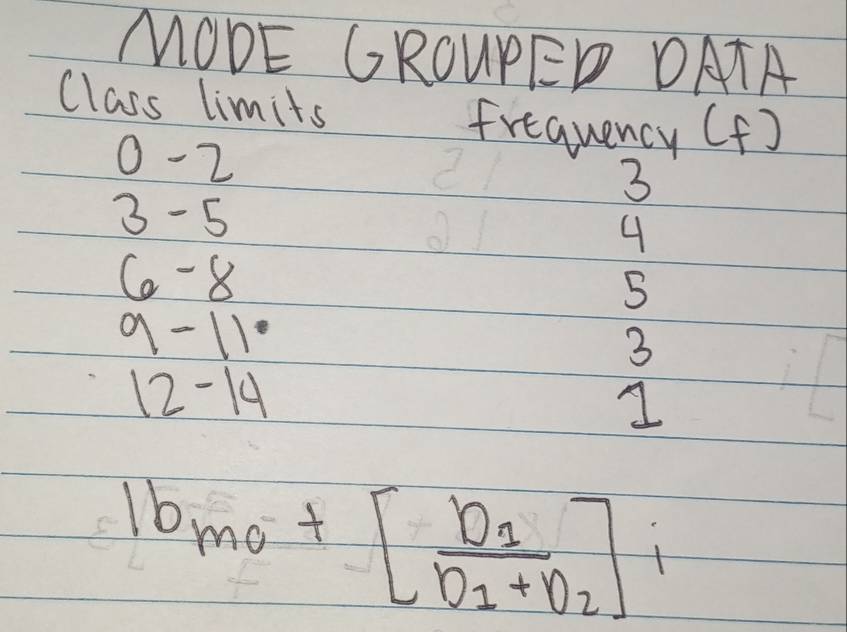 MODE GROUPED DATA
Class limits frequency (f)
0 - 2 3
3 - 5 4
6 - 8 5
9 - 11 3
12 - 14 1
lb_mo + [D_1 / (D_1 + D_2)] i